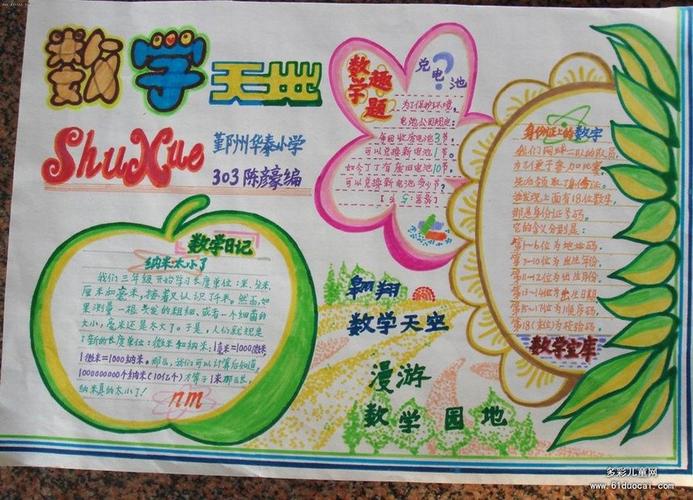 数学天地
ShuXue
鄞州华泰小学
303 陈豪编
数学日记
纳米太小了
我们三年级开始学习长度单位:米、分米、
厘米和毫米,接着又认识了千米。然而,如
果测量一根头发的粗细,或者一个细菌的
大小,毫米还是太大了。于是,人们就规定
了新的长度单位:微米和纳米。1毫米=1000微米,
1微米=1000纳米。那么,我们可以计算后知道,
1000000000个纳米(10亿个)才等于1米那么长,
纳米真的太小了!
nm
数学趣题
兑电池
?
为了保护环境,
电池公司规定:
每回收废电池3节,
可以兑换新电池1节。
如今丁丁有废旧电池10节,
可以兑换新电池多少节?
翱翔
数学天空
漫游
数学园地
身份证上的数字
我们网球二队的队员,
为了便于参加比赛,
上面有18位数字,
那是身份证号码。
它的含义分别是:
第1-6位为地址码。
第7-10位为出生年份,
第11-12位为出生月份,
第13-14位为出生日期
第15-17位为顺序码,
第18位为校验码。
数学宝库
多彩儿童网
www.61duocai.com